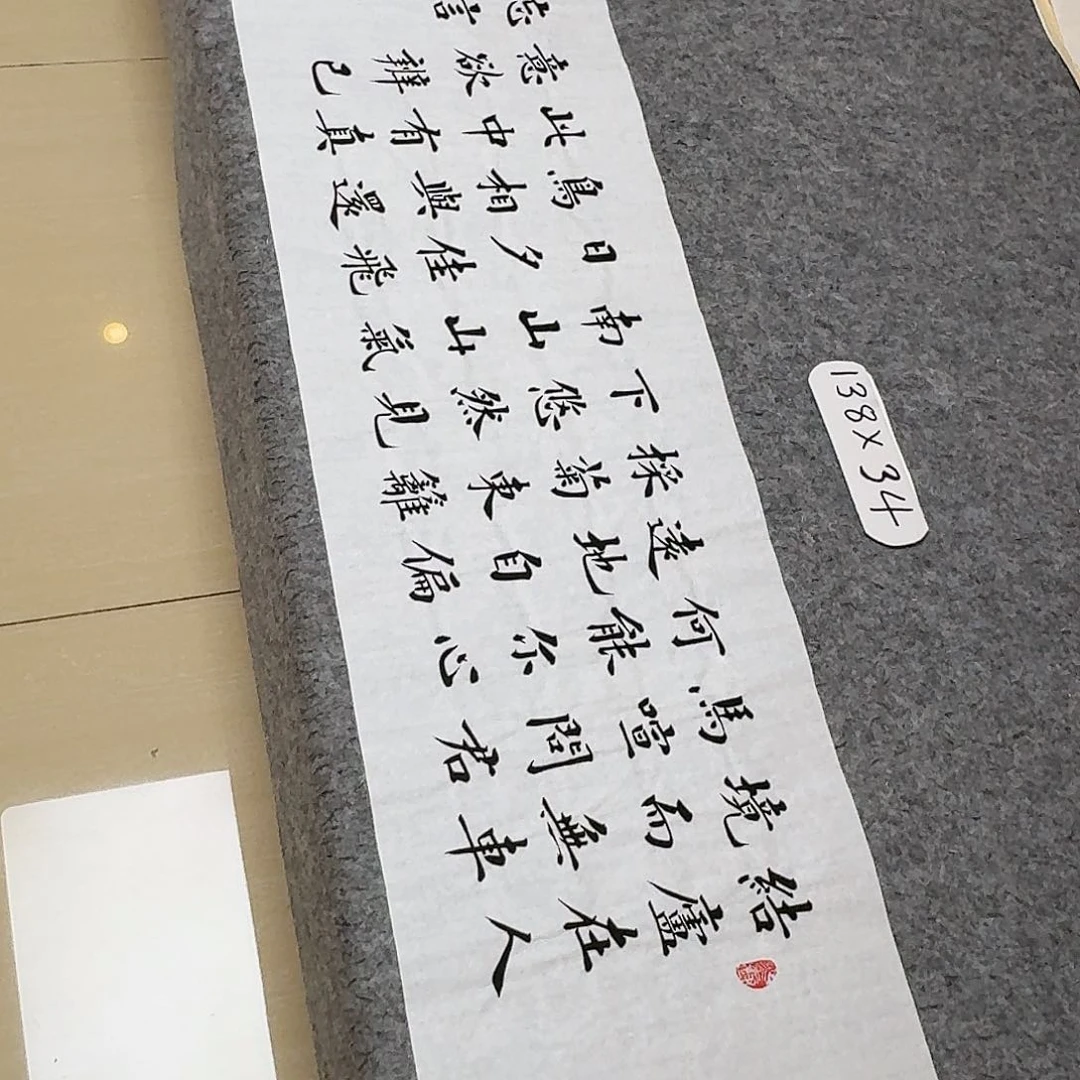 結廬在人
境而無車
馬喧問君
何能尔心
遠地自偏
採菊東籬
下悠然見
南山山氣
日夕佳飛
鳥相與還
此中有真
意欲已
忘言
138×34